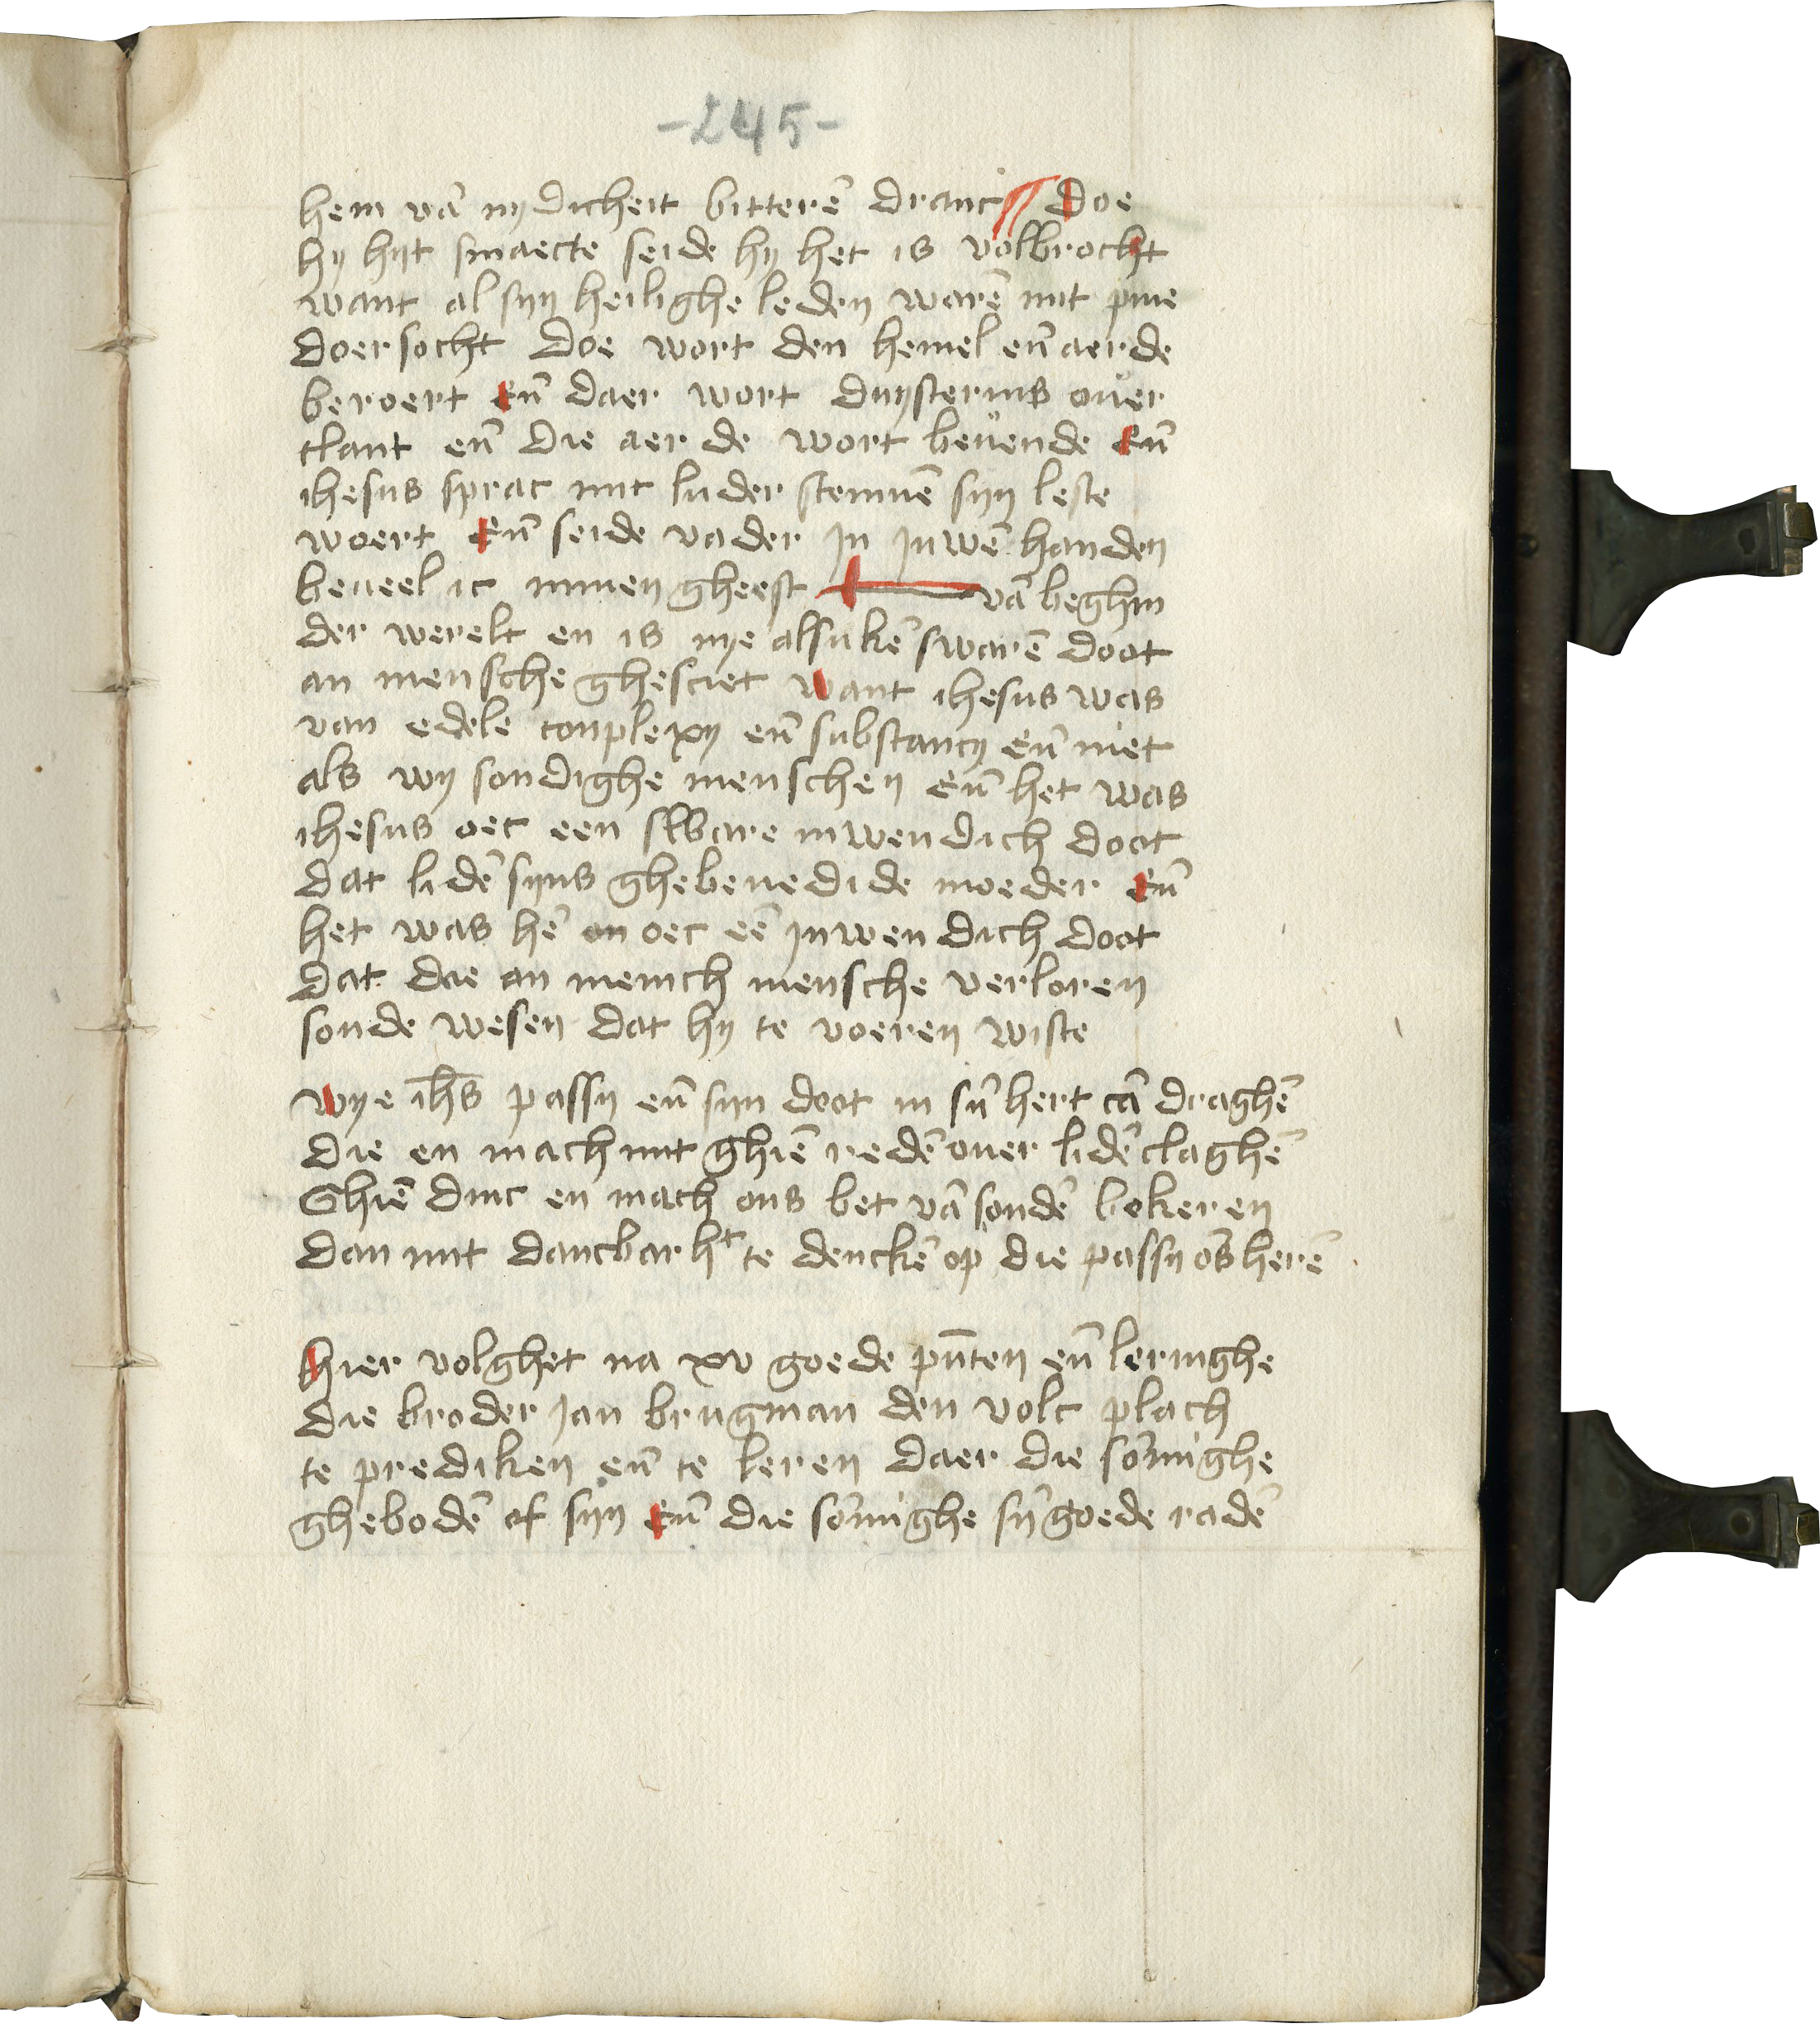 -245-
hem vā nydicheit bitterē dranc Doe
hy hijt smaecte seide hy het is volbrocht
want al syn heilighe leden warē mit pine
doersocht Doe wort den hemel eñ aerde
beroert Eñ daer wort duysternis ouer
tlant eñ die aerde wort beuende Eñ
ihesus sprac mit luder stemmē syn leste
woert Eñ seide vader In Juwē handen
beueel ic minen gheest vā beghin
der werelt en is nye alsukē swarē doot
an mensche ghesciet want ihesus was
van edele conplexy eñ substancy Eñ niet
als wy sondighe menschen Eñ het was
ihesus oec een sware inwendich doot
dat lidē syns ghebenedide moeder Eñ
het was hē an oec eē inwendich doot
dat die an menich mensche verloren
sonde wesen dat hy te voeren wiste
Wye ihs passy eñ syn doot in sȳ hert cā draghē
die en mach mit ghiē redē ouer lidē claghē
Ghiē dinc en mach ons bet vā sondē bekeren
dan mit dancbarht te denckē op die passy ōs herē
Hier volghet na xv goede pūten eñ leringhe
die broder Jan brugman den volc plach
te prediken eñ te leren daer die sōmighe
ghebodē of syn Eñ die sōmighe sȳ goede radē